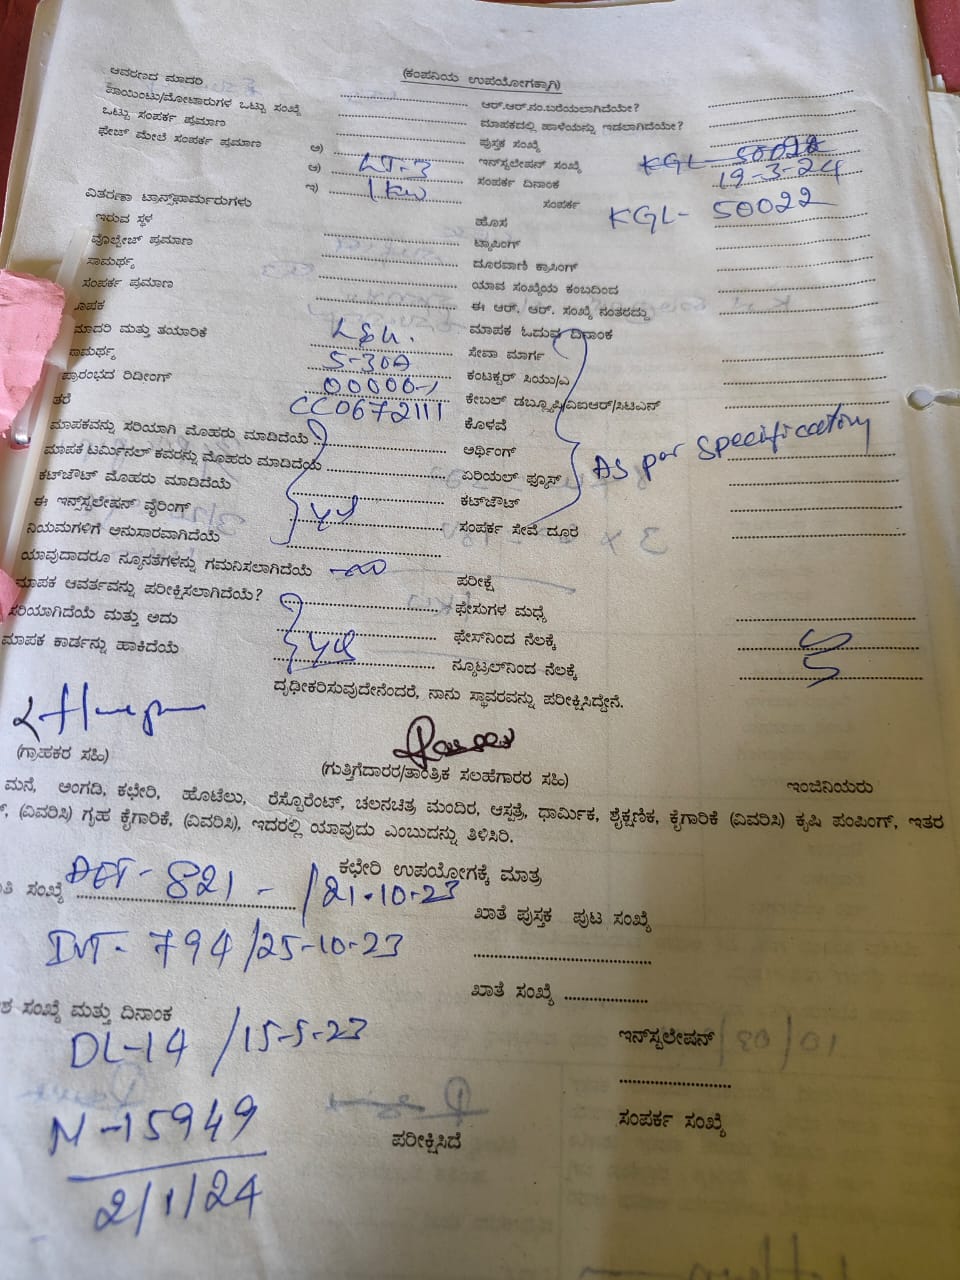 (ಕಂಪನಿಯ ಉಪಯೋಗಕ್ಕಾಗಿ)
ಆವರಣದ ಮಾದರಿ
ಆರ್.ಆರ್.ನಂ.ಬರೆಯಲಾಗಿದೆಯೇ?
ಪಾಯಿಂಟು/ಮೋಟಾರುಗಳ ಒಟ್ಟು ಸಂಖ್ಯೆ
ಮಾಪಕದಲ್ಲಿ ಹಾಳೆಯನ್ನು ಇಡಲಾಗಿದೆಯೇ?
ಒಟ್ಟು ಸಂಪರ್ಕ ಪ್ರಮಾಣ
ಪುಸ್ತಕ ಸಂಖ್ಯೆ
ಫೇಜ್ ಮೇಲೆ ಸಂಪರ್ಕ ಪ್ರಮಾಣ ಅ)
ಇನ್‌ಸ್ಟಲೇಷನ್ ಸಂಖ್ಯೆ KGL-50022
ಆ) LT-3 ಸಂಪರ್ಕ ದಿನಾಂಕ 19-3-24
ಇ) 1kw ಸಂಪರ್ಕ
ವಿತರಣಾ ಟ್ರಾನ್ಸ್‌ಫಾರ್ಮರುಗಳು
ಹೊಸ KGL- 50022
ಇರುವ ಸ್ಥಳ ಟ್ಯಾಪಿಂಗ್
ವೊಲ್ಟೇಜ್ ಪ್ರಮಾಣ ದೂರವಾಣಿ ಕ್ರಾಸಿಂಗ್
ಸಾಮರ್ಥ್ಯ ಯಾವ ಸಂಖ್ಯೆಯ ಕಂಬದಿಂದ
ಸಂಪರ್ಕ ಪ್ರಮಾಣ ಈ ಆರ್. ಆರ್. ಸಂಖ್ಯೆ ನಂತರದ್ದು
ಮಾಪಕ ಓದುವ ದಿನಾಂಕ
ಮಾದರಿ ಮತ್ತು ತಯಾರಿಕೆ ಸೇವಾ ಮಾರ್ಗ
ಸಾಮರ್ಥ್ಯ 5-30A ಕಂಟಕ್ಟರ್ ಸಿಯು/ಎ
ಪ್ರಾರಂಭದ ರಿಡೀಂಗ್ 00000-1 ಕೇಬಲ್ ಡಬ್ಲ್ಯೂಪಿ/ವಿಐಆರ್/ಸಿಟಿಎನ್
ತರೆ CC0672111 ಕೊಳವೆ
ಮಾಪಕವನ್ನು ಸರಿಯಾಗಿ ಮೊಹರು ಮಾಡಿದೆಯೆ ಅರ್ಥಿಂಗ್ As per specification
ಮಾಪಕ ಟರ್ಮಿನಲ್ ಕವರನ್ನು ಮೊಹರು ಮಾಡಿದೆಯೆ ಏರಿಯಲ್ ಫ್ಯೂಸ್
ಕಟ್‌ಜೌಟ್ ಮೊಹರು ಮಾಡಿದೆಯೆ ಕಟ್‌ಜೌಟ್
ಈ ಇನ್‌ಸ್ಟಲೇಷನ್ ವೈರಿಂಗ್ ಸಂಪರ್ಕ ಸೇವೆ ದೂರ
ನಿಯಮಗಳಿಗೆ ಅನುಸಾರವಾಗಿದೆಯೆ
ಯಾವುದಾದರೂ ನ್ಯೂನತೆಗಳನ್ನು ಗಮನಿಸಲಾಗಿದೆಯೆ ಪರೀಕ್ಷೆ
ಮಾಪಕ ಆವರ್ತವನ್ನು ಪರೀಕ್ಷಿಸಲಾಗಿದೆಯೆ? ಫೇಸುಗಳ ಮಧ್ಯೆ
ಸರಿಯಾಗಿದೆಯೆ ಮತ್ತು ಅದು ಫೇಸ್‌ನಿಂದ ನೆಲಕ್ಕೆ
ಮಾಪಕ ಕಾರ್ಡನ್ನು ಹಾಕಿದೆಯೆ ನ್ಯೂಟ್ರಲ್‌ನಿಂದ ನೆಲಕ್ಕೆ
ದೃಢೀಕರಿಸುವುದೇನೆಂದರೆ, ನಾನು ಸ್ಥಾವರವನ್ನು ಪರೀಕ್ಷಿಸಿದ್ದೇನೆ.
(ಗ್ರಾಹಕರ ಸಹಿ) (ಗುತ್ತಿಗೆದಾರರ/ತಾಂತ್ರಿಕ ಸಲಹೆಗಾರರ ಸಹಿ) ಇಂಜಿನಿಯರು
ಮನೆ, ಅಂಗಡಿ, ಕಛೇರಿ, ಹೊಟೆಲು, ರೆಸ್ಟೊರೆಂಟ್, ಚಲನಚಿತ್ರ ಮಂದಿರ, ಆಸ್ಪತ್ರೆ, ಧಾರ್ಮಿಕ, ಶೈಕ್ಷಣಿಕ, ಕೈಗಾರಿಕೆ (ವಿವರಿಸಿ) ಕೃಷಿ ಪಂಪಿಂಗ್, ಇತರ
(ವಿವರಿಸಿ) ಗೃಹ ಕೈಗಾರಿಕೆ, (ವಿವರಿಸಿ), ಇದರಲ್ಲಿ ಯಾವುದು ಎಂಬುದನ್ನು ತಿಳಿಸಿರಿ.
ಕಛೇರಿ ಉಪಯೋಗಕ್ಕೆ ಮಾತ್ರ
ಸಂಖ್ಯೆ 821 - /21-10-23 ಖಾತೆ ಪುಸ್ತಕ ಪುಟ ಸಂಖ್ಯೆ
794/25-10-23
ಖಾತೆ ಸಂಖ್ಯೆ
ಸಂಖ್ಯೆ ಮತ್ತು ದಿನಾಂಕ
DL-14 /15-5-23 ಇನ್‌ಸ್ಟಲೇಷನ್
N-15949 ಸಂಪರ್ಕ ಸಂಖ್ಯೆ
ಪರೀಕ್ಷಿಸಿದೆ
2/1/24